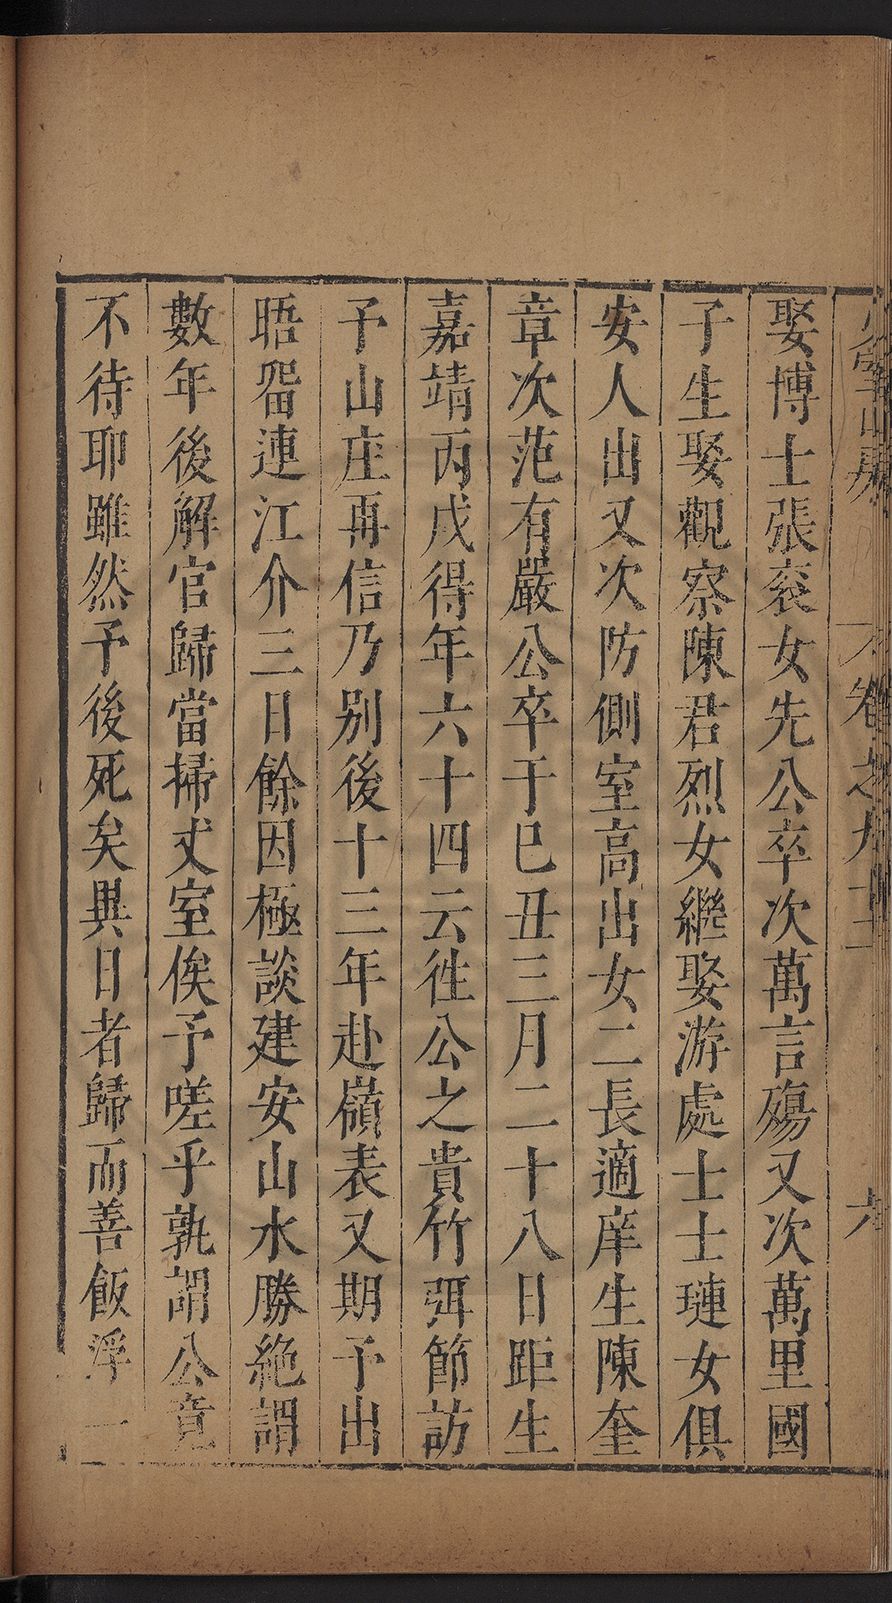 卷之九十二
六
娶博士張袞女先公卒次萬言殤又次萬里國
子生娶觀察陳君烈女繼娶游處士士璉女俱
安人出又次防側室高出女二長適庠生陳奎
章次范有嚴公卒于巳丑三月二十八日距生
嘉靖丙戌得年六十四云徃公之貴竹弭節訪
予山庄再信乃别後十三年赴嶺表又期予出
晤畱連江介三日餘因極談建安山水勝絶謂
數年後解官歸當掃丈室俟予嗟乎孰謂公竟
不待耶雖然予後死矣異日者歸而善飯浮一